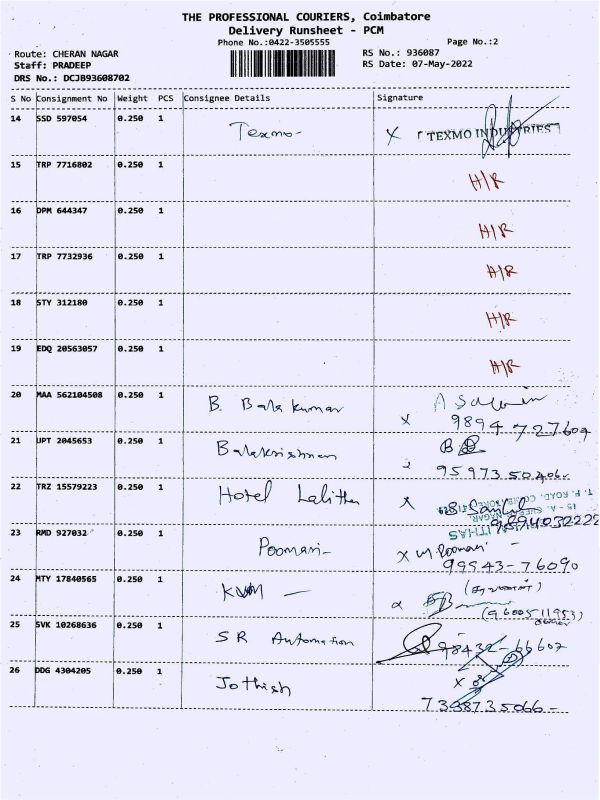 THE PROFESSIONAL COURIERS, Coimbatore
Delivery Runsheet - PCM
Phone No.:0422-3505555
Page No.:2
Route: CHERAN NAGAR
RS No.: 936087
Staff: PRADEEP
RS Date: 07-May-2022
DRS No.: DCJB93608702
S No Consignment No Weight PCS Consignee Details Signature
14 SSD 597054 0.250 1 Texmo- X TEXMO INDUSTRIES
15 TRP 7716802 0.250 1 H/R
16 DPM 644347 0.250 1 H/R
17 TRP 7732936 0.250 1 H/R
18 STY 312180 0.250 1 H/R
19 EDQ 20563057 0.250 1 H/R
20 MAA 562104508 0.250 1 B. Balakumar X
9894 727604
21 UPT 2045653 0.250 1 Balakrishnan
22 TRZ 15579223 0.250 1 Hotel Lalitha X
9894032222
23 RMD 927032 0.250 1 Poomani- X M. Poomani
99543-76090
24 MTY 17840565 0.250 1 KVM
(9600511953)
25 SVK 10268636 0.250 1 SR Automation 98432-66607
26 DDG 4304205 0.250 1 Jothish X
7338735066-